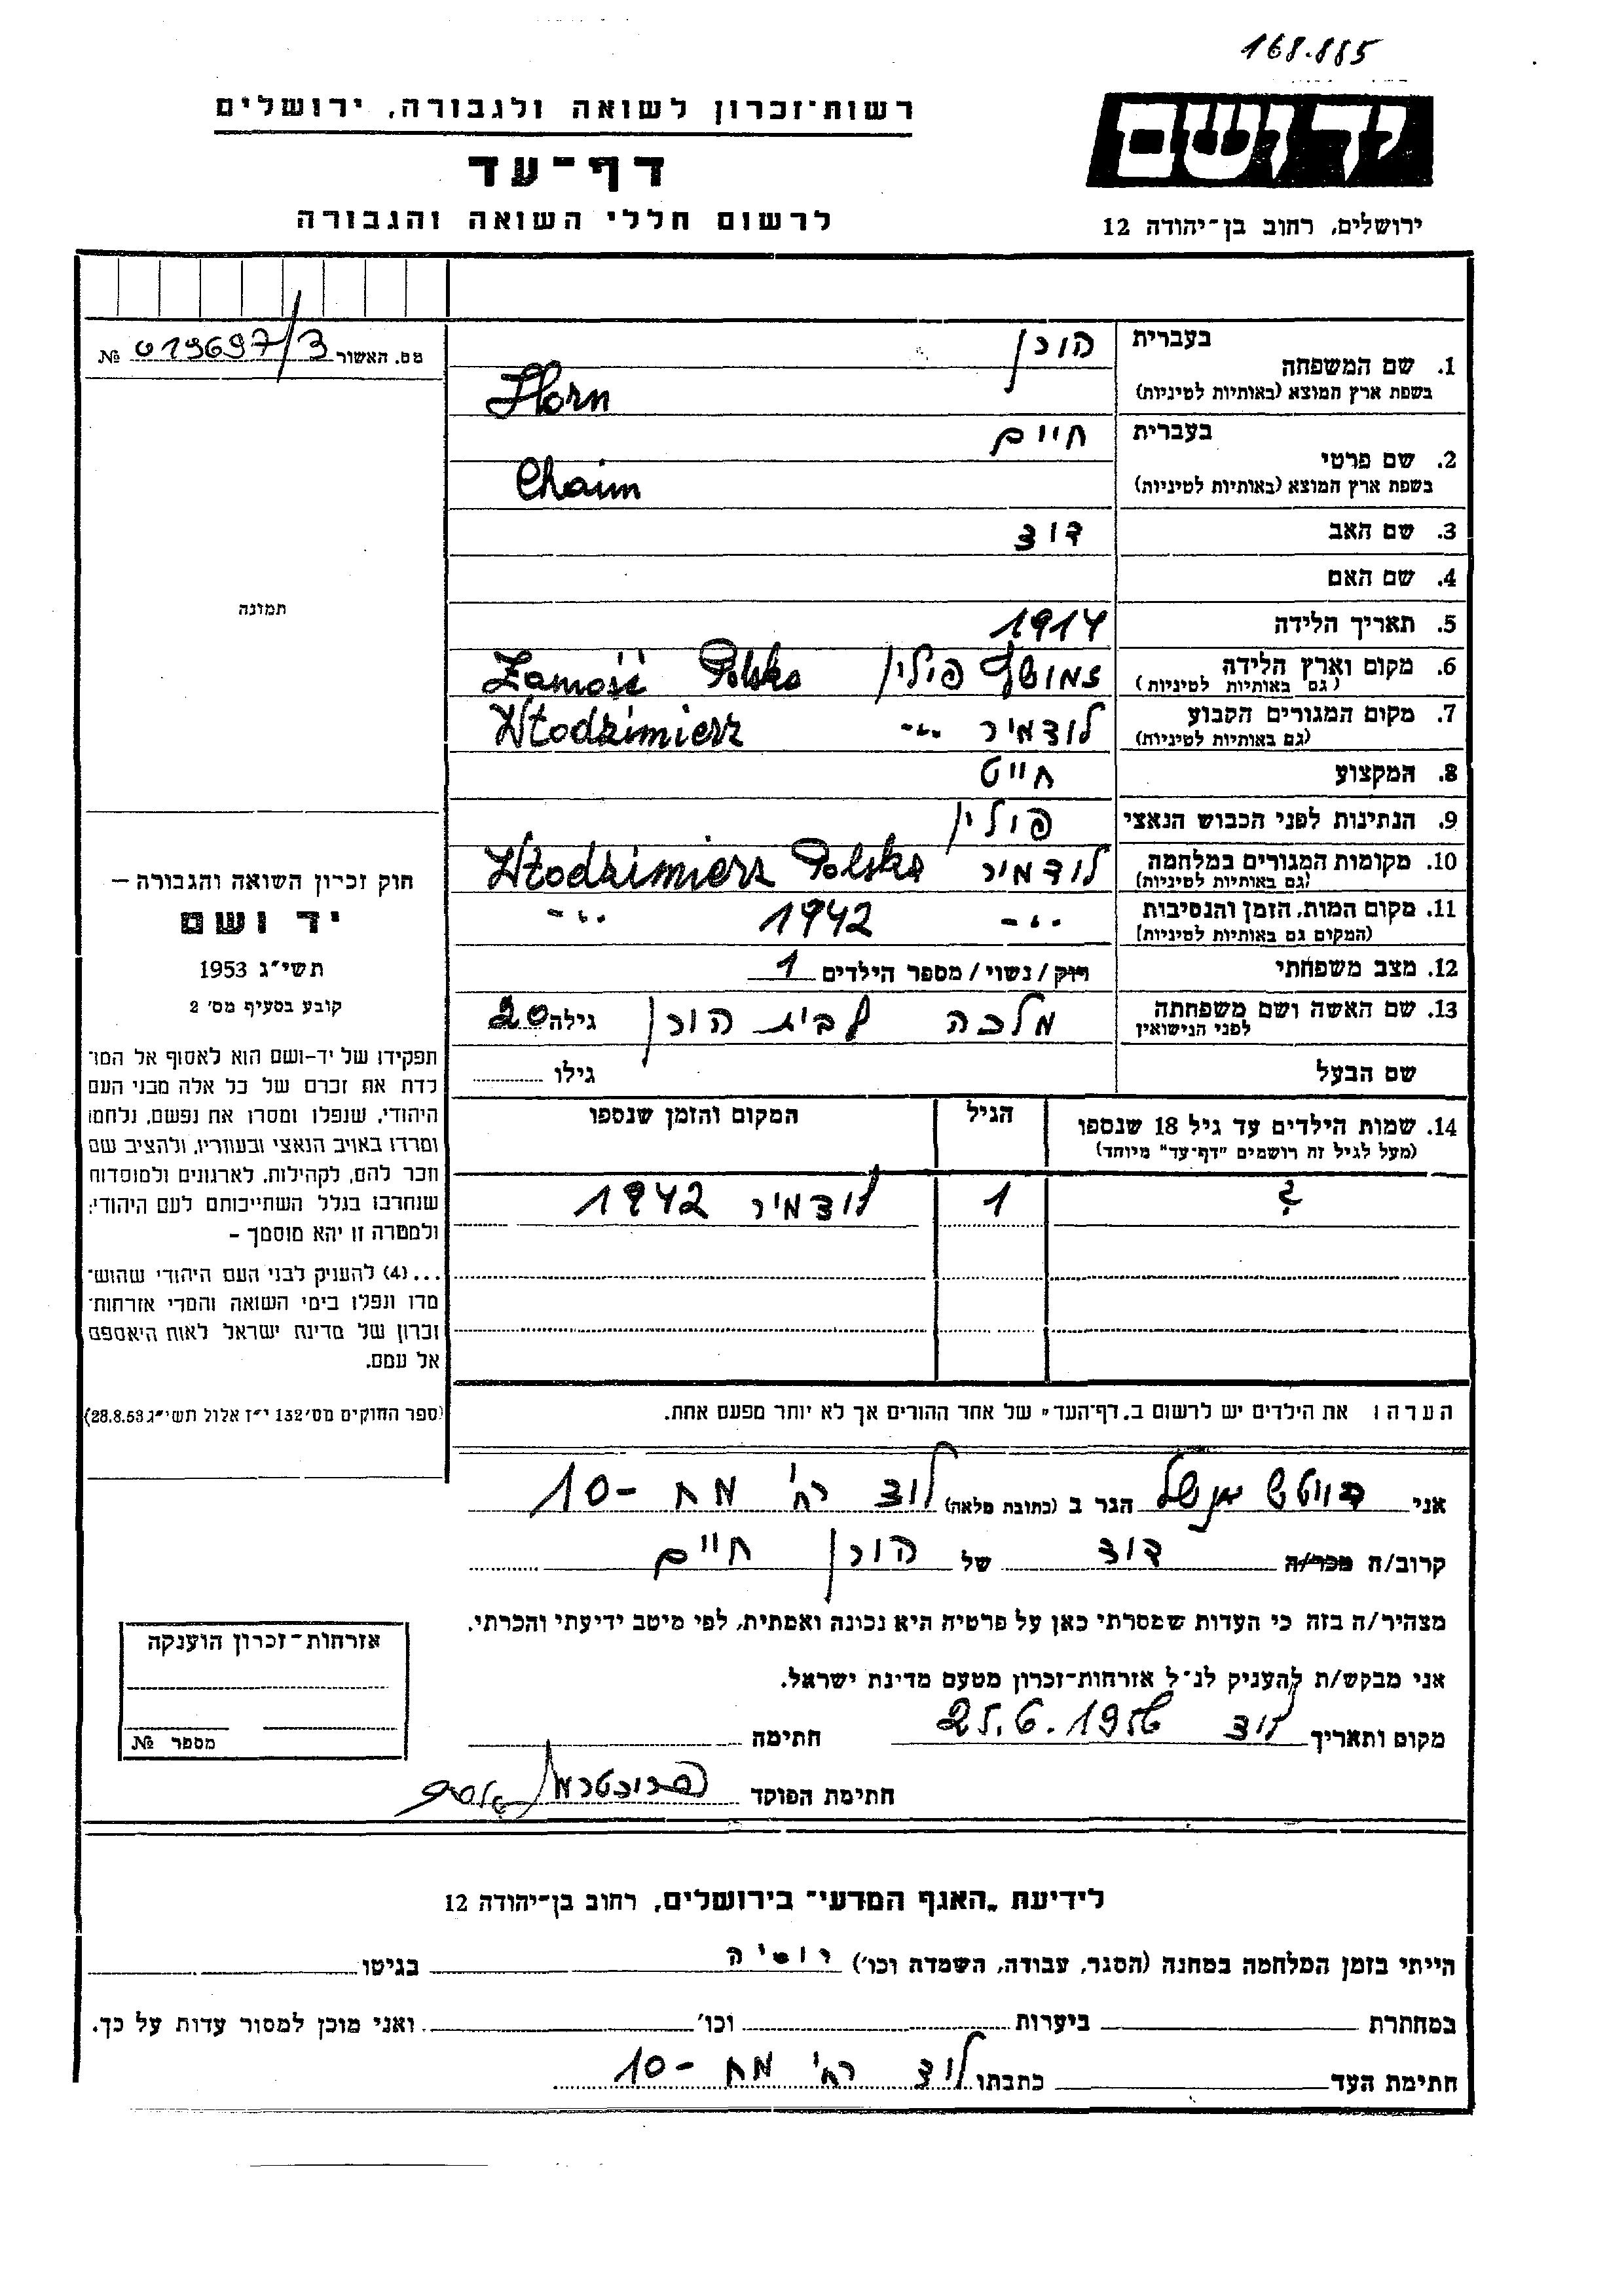 168.885
רשות-זכרון לשואה ולגבורה, ירושלים
יד ושם
דף-עד
לרשום חללי השואה והגבורה
ירושלים, רחוב בן-יהודה 12
מס. האשור 019697/3 №
בעברית הורן
1. שם המשפחה
בשפת ארץ המוצא (באותיות לטיניות) Horn
בעברית חיים
2. שם פרטי
בשפת ארץ המוצא (באותיות לטיניות) Chaim
3. שם האב דוד
4. שם האם
5. תאריך הלידה 1914
6. מקום וארץ הלידה זמושץ פולין Zamość Polska
(גם באותיות לטיניות)
7. מקום המגורים הקבוע לודמיר -"- Włodzimierz
(גם באותיות לטיניות)
8. המקצוע חייט
9. הנתינות לפני הכבוש הנאצי פולין
10. מקומות המגורים במלחמה לודמיר Włodzimierz Polska
(גם באותיות לטיניות)
11. מקום המות, הזמן והנסיבות -"- 1942 -"-
(המקום גם באותיות לטיניות)
12. מצב משפחתי רווק / נשוי / מספר הילדים 1
13. שם האשה ושם משפחתה מלכה לבית הורן גילה 20
לפני הנישואין
שם הבעל גילו
14. שמות הילדים עד גיל 18 שנספו הגיל המקום והזמן שנספו
(מעל לגיל זה רושמים "דף-עד" מיוחד)
? 1 לודמיר 1942
הערה: את הילדים יש לרשום ב„דף-העד" של אחד ההורים אך לא יותר מפעם אחת.
תמונה
חוק זכרון השואה והגבורה —
יד ושם
תשי"ג 1953
קובע בסעיף מס' 2
תפקידו של יד-ושם הוא לאסוף אל המו־
לדת את זכרם של כל אלה מבני העם
היהודי, שנפלו ומסרו את נפשם, נלחמו
ומרדו באויב הנאצי ובעוזריו, ולהציב שם
וזכר להם, לקהילות, לארגונים ולמוסדות
שנחרבו בגלל השתייכותם לעם היהודי;
ולמטרה זו יהא מוסמך -
...(4) להעניק לבני העם היהודי שהוש־
מדו ונפלו בימי השואה והמרי אזרחות־
זכרון של מדינת ישראל לאות היאספם
אל עמם.
(ספר החוקים מס' 132 י"ז אלול תשי"ג 28.8.53)
אני הגר ב (כתובת מלאה) לוד רח' מח -10
קרוב/ה מכר/ה דוד של הורן חיים
מצהיר/ה בזה כי העדות שמסרתי כאן על פרטיה היא נכונה ואמתית, לפי מיטב ידיעתי והכרתי.
אני מבקש/ת להעניק לנ"ל אזרחות-זכרון מטעם מדינת ישראל.
מקום ותאריך לוד 25.6.1956 חתימה
חתימת הפוקד
אזרחות-זכרון הוענקה
מספר №
לידיעת „האגף המדעי" בירושלים, רחוב בן-יהודה 12
הייתי בזמן המלחמה במחנה (הסגר, עבודה, השמדה וכו') רוסיה בגיטו
במחתרת ביערות וכו' ואני מוכן למסור עדות על כך.
חתימת העד כתבתו לוד רח' מח -10